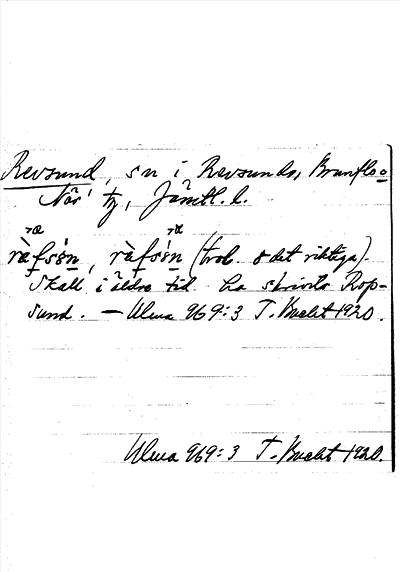 Revsund, sn i Revsunds, Brunflo o
Näs' tg, Jämtl. l.
ræ ræ
ràfsǝ́n, ràfsǝ́n (trol. det riktiga).
Skall i äldre tid ha skrivits Rop-
sund. – Ulma 969:3 T. Bucht 1920.
Ulma 969:3 T. Bucht 1920.